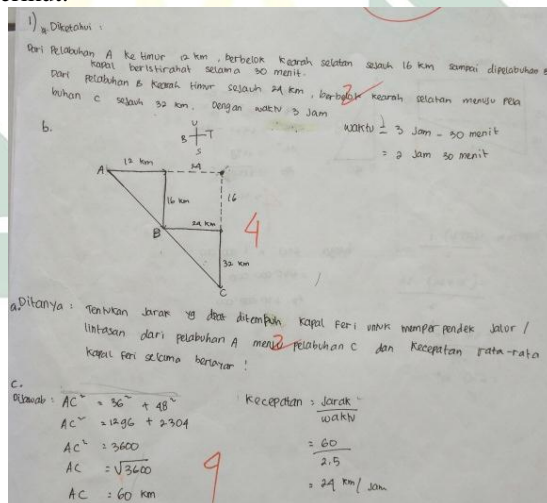 1) * Diketahui :
Dari Pelabuhan A ke timur 12 km, berbelok kearah selatan sejauh 16 km sampai dipelabuhan B
kapal beristirahat selama 30 menit.
Dari pelabuhan B kearah timur sejauh 24 km, berbelok kearah selatan menuju pela
buhan C sejauh 32 km. Dengan waktu 3 Jam
3
b.
U
B T
S
waktu = 3 Jam - 30 menit
= 2 Jam 30 menit
12 km
24
A
16 km
16
24 km
B
4
32 km
C
a. Ditanya : Tentukan Jarak yg dpat ditempuh kapal Feri untuk memperpendek Jalur /
lintasan dari pelabuhan A menuju pelabuhan C dan Kecepatan rata-rata
kapal feri selama berlayar !
3
C.
Dijawab : AC² = 36² + 48²
AC² = 1296 + 2304
AC² = 3600
AC = √3600
AC = 60 km
9
Kecepatan = Jarak
waktu
= 60
2,5
= 24 km / Jam